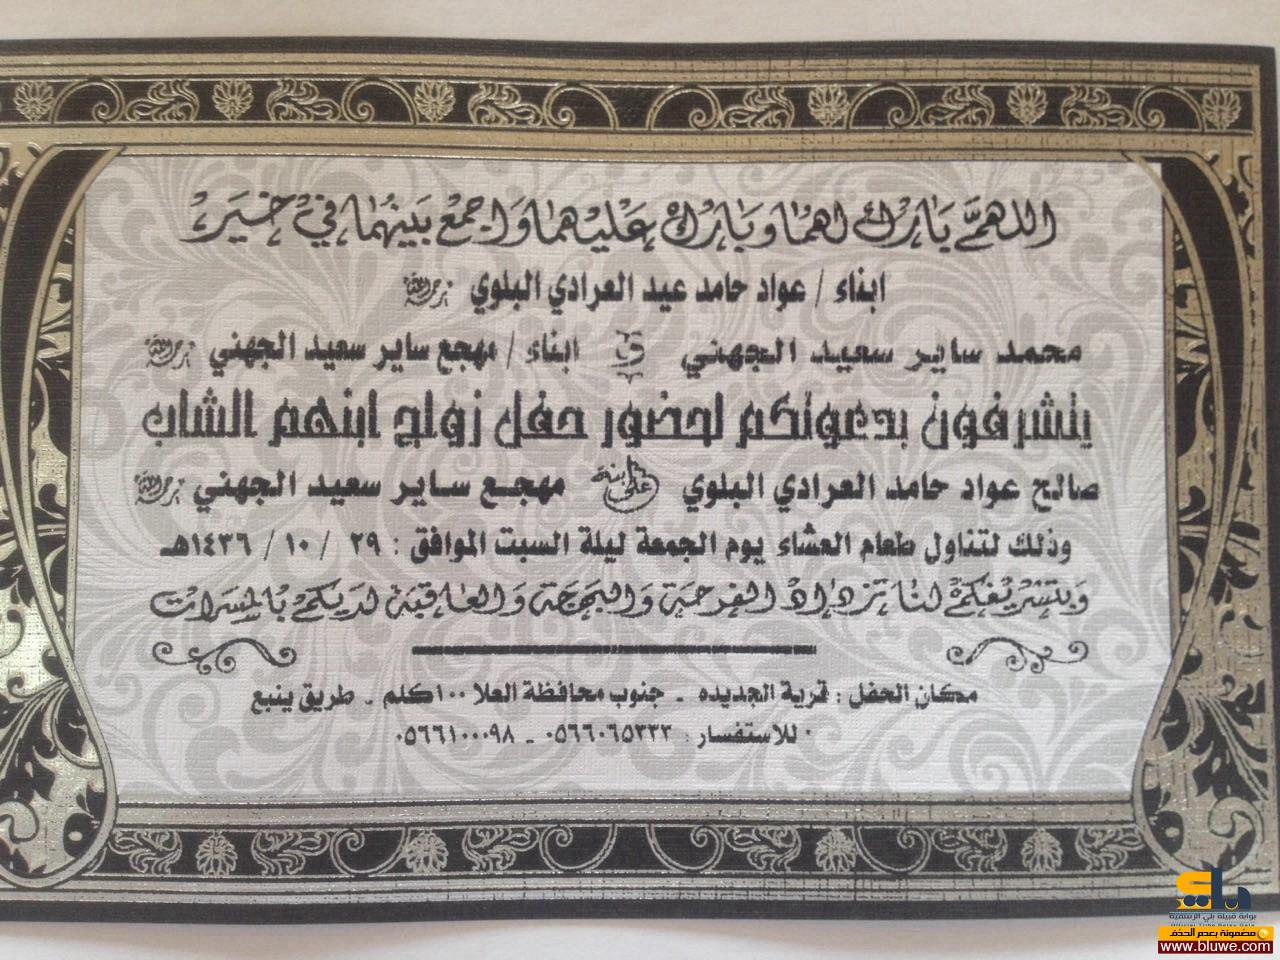 اللهم بارك لهما وبارك عليهما واجمع بينهما في خير
ابناء / عواد حامد عيد العرادي البلوي رحمه الله
محمد ساير سعيد الجهني و ابناء / مهجع ساير سعيد الجهني رحمه الله
يتشرفون بدعوتكم لحضور حفل زواج ابنهم الشاب
صالح عواد حامد العرادي البلوي على ابنة مهجع ساير سعيد الجهني رحمه الله
وذلك لتناول طعام العشاء يوم الجمعة ليلة السبت الموافق : ٢٩ / ١٠ / ١٤٣٦هـ
وبتشريفكم لنا تزداد الفرحة والبهجة والعاقبة لديكم بالمسرات
مكان الحفل : قرية الجديده - جنوب محافظة العلا ١٠٠كلم - طريق ينبع
للاستفسار : ٠٥٦٦٠٦٥٣٣٣ - ٠٥٦٦١٠٠٠٩٨
بلي
بوابة قبيلة بلي الرسمية
مضمونة بعدم الحذف
www.bluwe.com